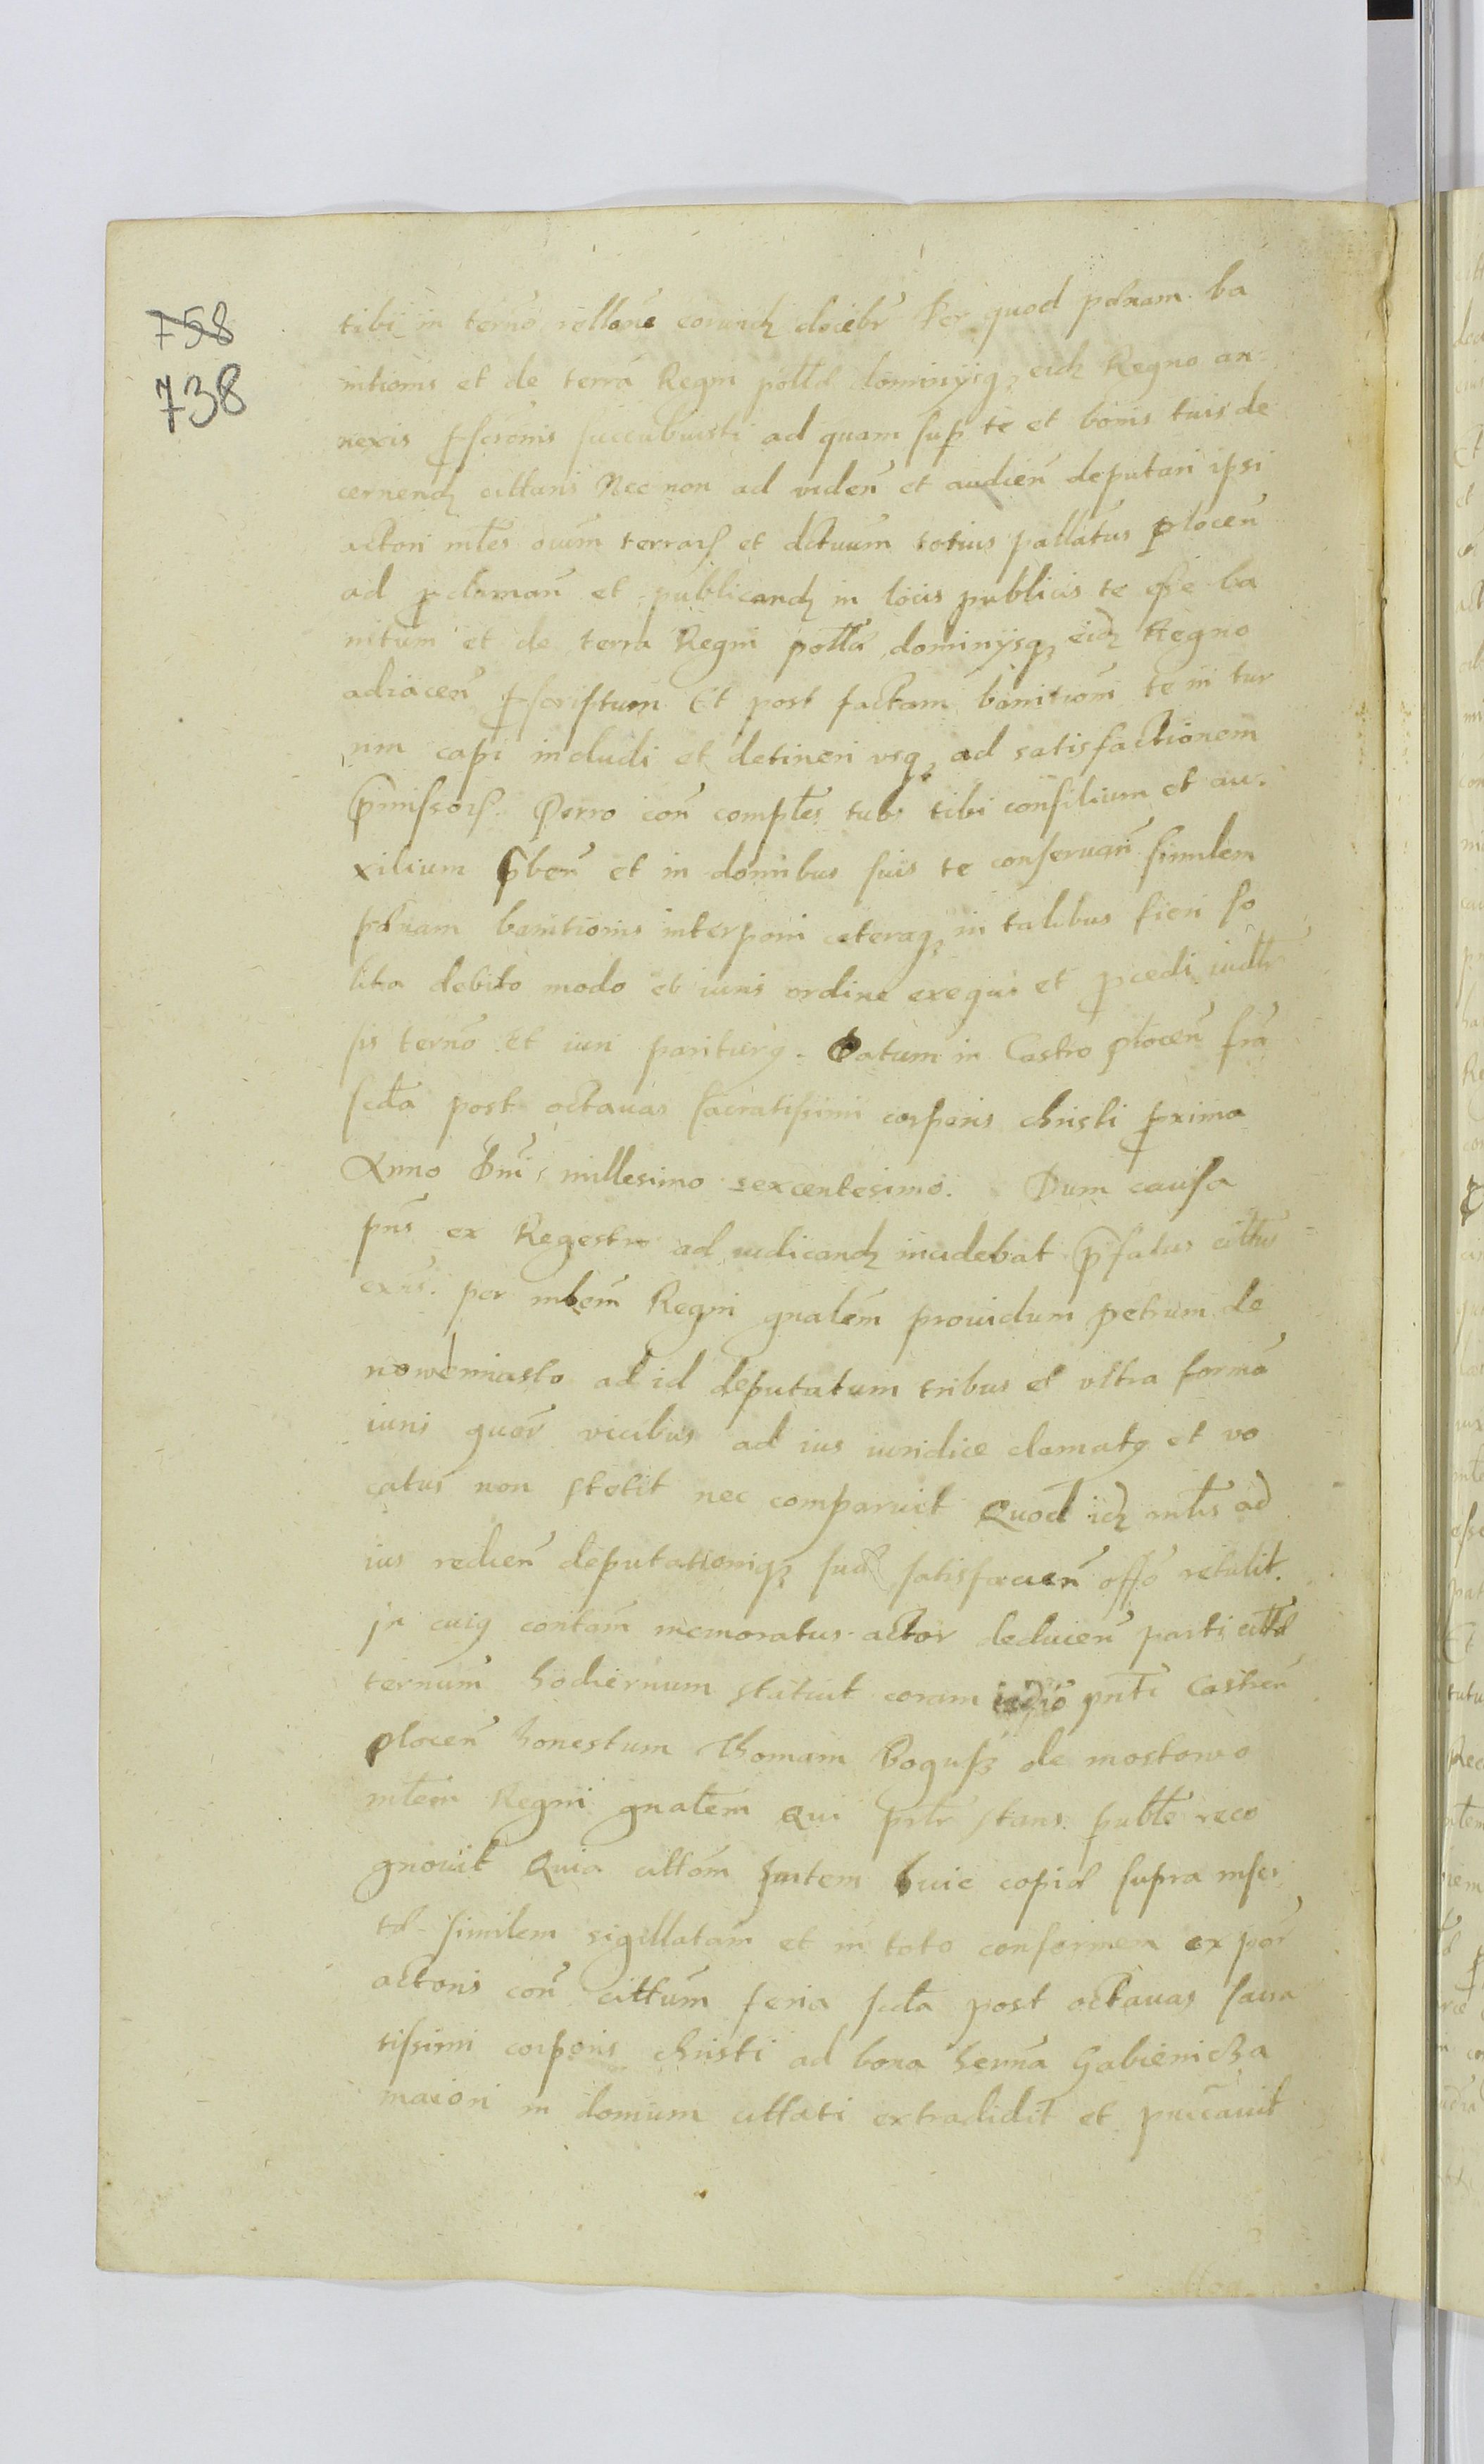 758
738
tibi in termo rellone eorundem docebr Per quod paenam ba
nitionis et de terra Regni pollae dominysque eidem Regno an-
nexis pscronis succubuisti ad quam sup te et bonis tuis de
cernend cittaris Nec non ad viden et audien deputari ipsi
actori mles oium terrar et dctuum totius pallatus plocen
ad pclaman et publicand in locis publicis te esse ba
nitum et de terra Regni polla dominysque eidem Regno
adiacen pscriptum Et post factam banitiom te in tur
rim capi includi et detineri vsque ad satisfactionem
pmissor. Porro con comples tuos tibi consilium et au-
xilium pben et in domibus suis te conseruan similem
paenam banitionis interponi ceteraque in talibus fieri so
lita debito modo et iuris ordine exequi et pcedi iudlr
sis termo Et iuri pariturus. Datum in Castro plocen fria
scda post octauas sacratissimi corporis christi pxima
Anno Dni millesimo sexcentesimo. Dum causa
pns ex Regestro ad iudicand incidebat pfatus cittus
exns. per mlem Regni gnalem prouidum petrum de
nowemiasto ad id deputatum tribus et vltra forma
iuris quor vicibus ad ius iuridice clamatus et vo
catus non stetit nec comparuit Quod idem mlis ad
ius redien deputationique suae satisfacien offo retulit.
In cuius contam memoratus actor deducen parti cittae
ternum hodiernum statuit coram iudio pnti Castren
plocen honestum Thomam Bogusz de mostowo
mlem Regni gnalem Qui prlr stans puble reco
gnouit Quia cittom pntem huic copiae supra inser
tae similem sigillatam et in toto conformem ex per
actoris con cittum feria scda post octauas sacra
tissimi corporis christi ad bona herna Gabienicza
maiori in domum cittati extradidit et puicauit